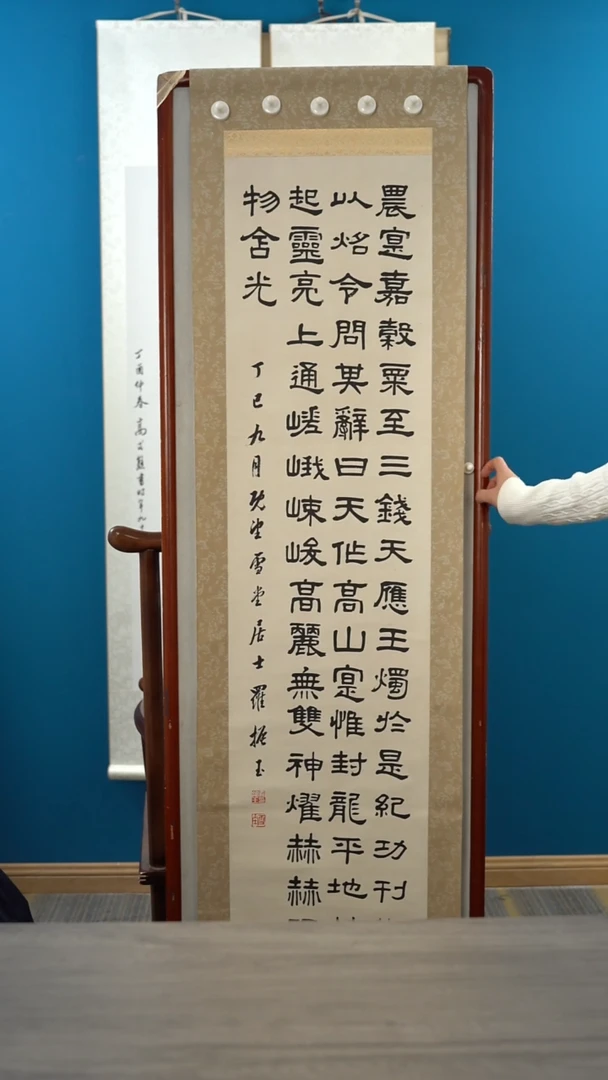 農寔嘉穀粟至三錢天應王燭於是紀功刊
以炤令問其辭曰天作高山寔惟封龍平地
起靈亮上通嵯峨崠峻高麗無雙神燿赫赫
物含光
丁巳九月既望雪堂居士羅振玉
丁酉仲春 高書時年九十